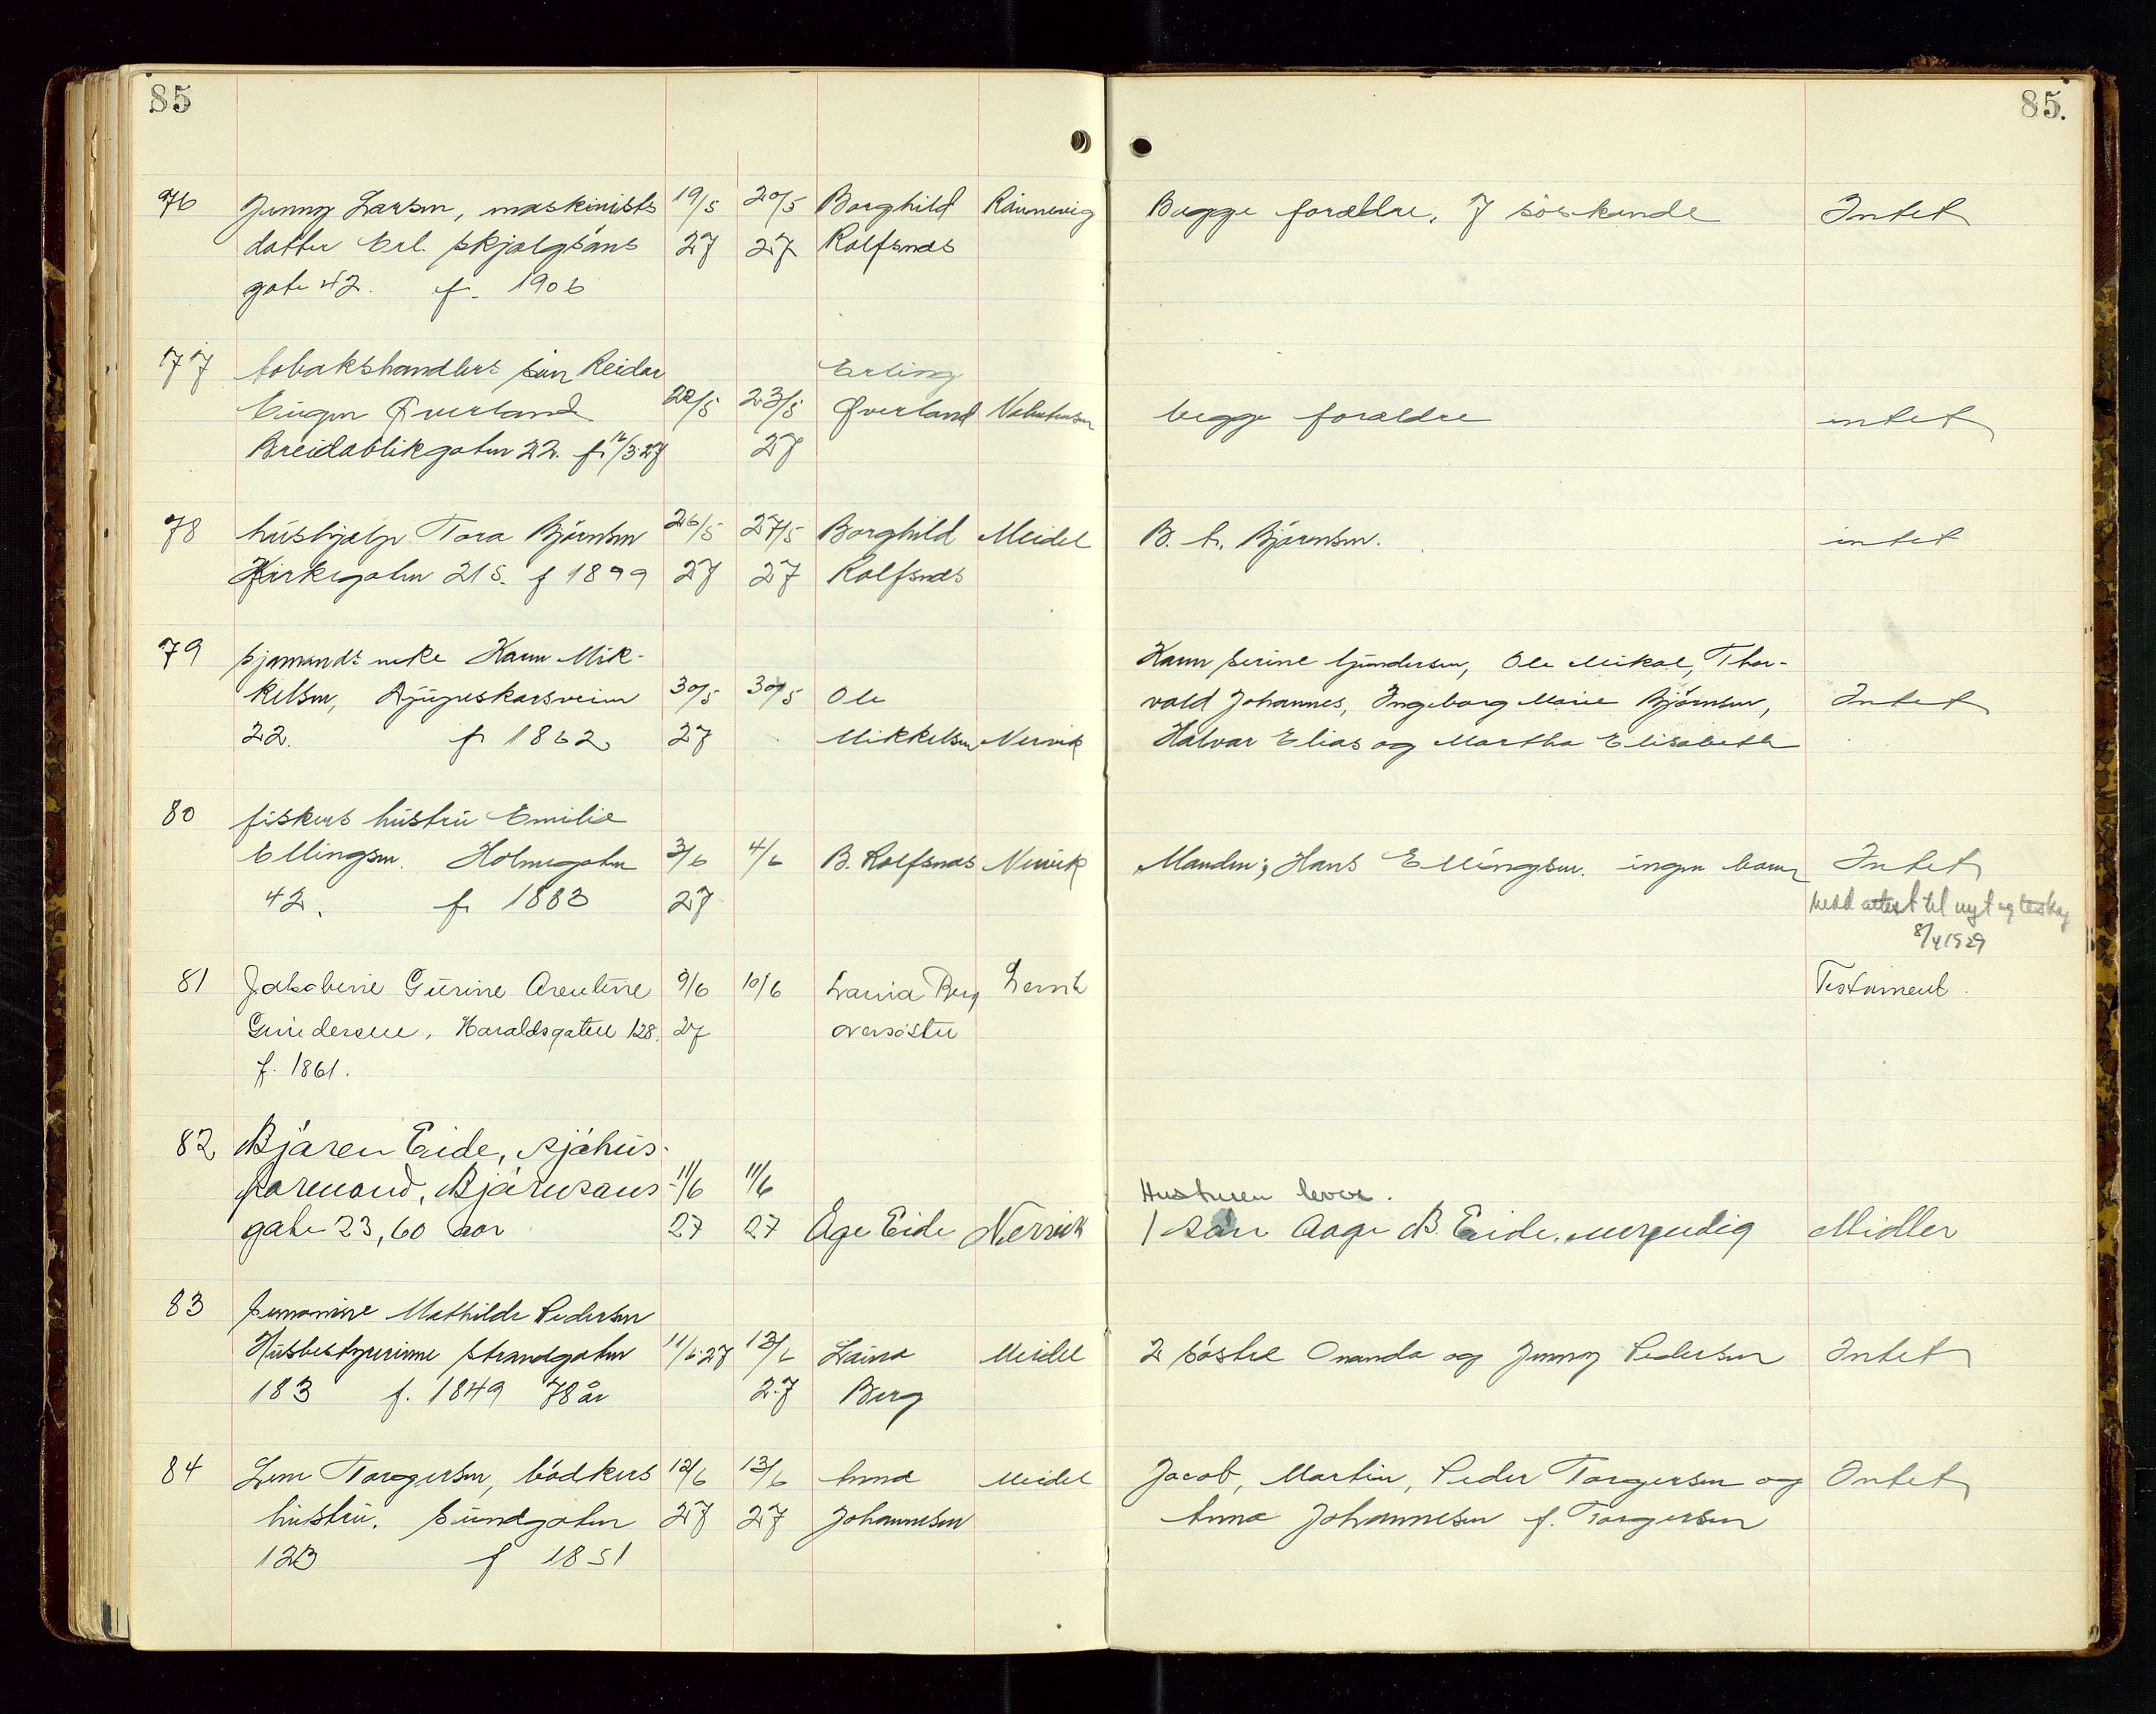 85
85.
76 Jenny Larsen, maskinists 19/5 20/5 Borghild Rånnevig Begge forældre, 7 söskende Intet
datter Erl. Skjalgsöns 27 27 Rolfsnes
gate 42. f. 1906
77 tobakshandlers sön Reidar Erling
Eugen Øverland 22/5 23/5 Øverland begge forældre intet
Breidablikgaten 22. f 16/3 27 27
78 hushjælp Tora Björnsen 26/5 27/5 Borghild Meidel B. Björnsen. intet
Kirkegaten 215. f 1899 27 27 Rolfsnes
79 sjömands enke Karen Mik- Karen Serine Gundersen, Ole Mikal, Thor-
kelsen, Djupeskarsveien 30/5 30/5 Ole vald Johannes, Ingeborg Marie Björnsen, Intet
22. f 1862 27 Mikkelsen Nervik Halvar Elias og Martha Elisabeth
80 fiskers hustru Emilie
Ellingsen. Holmegaten 3/6 4/6 B. Rolfsnes Nervik Manden; Hans Ellingsen. ingen barn Intet
42. f. 1883 27 Medd attest til nyt egteskap
8/4 1929
81 Jakobine Gurine Arentine 9/6 10/6 Laura Berg Nervik Testament.
Gundersen, Haraldsgaten 128. 27 oversöster
f. 1861.
82 Björen Eide, sjöhus-
formand, Björnsons 11/6 11/6 Hustruen lever.
gate 23, 60 aar 27 27 Åge Eide Nervik 1 sön Aage B. Eide, myndig Midler
83 Mathilde Pedersen
Husbestyrerinne Strandgaten 11/6-27 13/6 Laura Meidel 2 söstre Amanda og Jenny Pedersen Intet
183 f. 1849 78 år 27 Berg
84 Lene Torgersen, bödkers 12/6 13/6 Anna Meidel Jacob, Martin, Peder Torgersen og Intet
hustru, Sundgaten 27 27 Johannesen Anna Johannesen f. Torgersen
123 f 1851